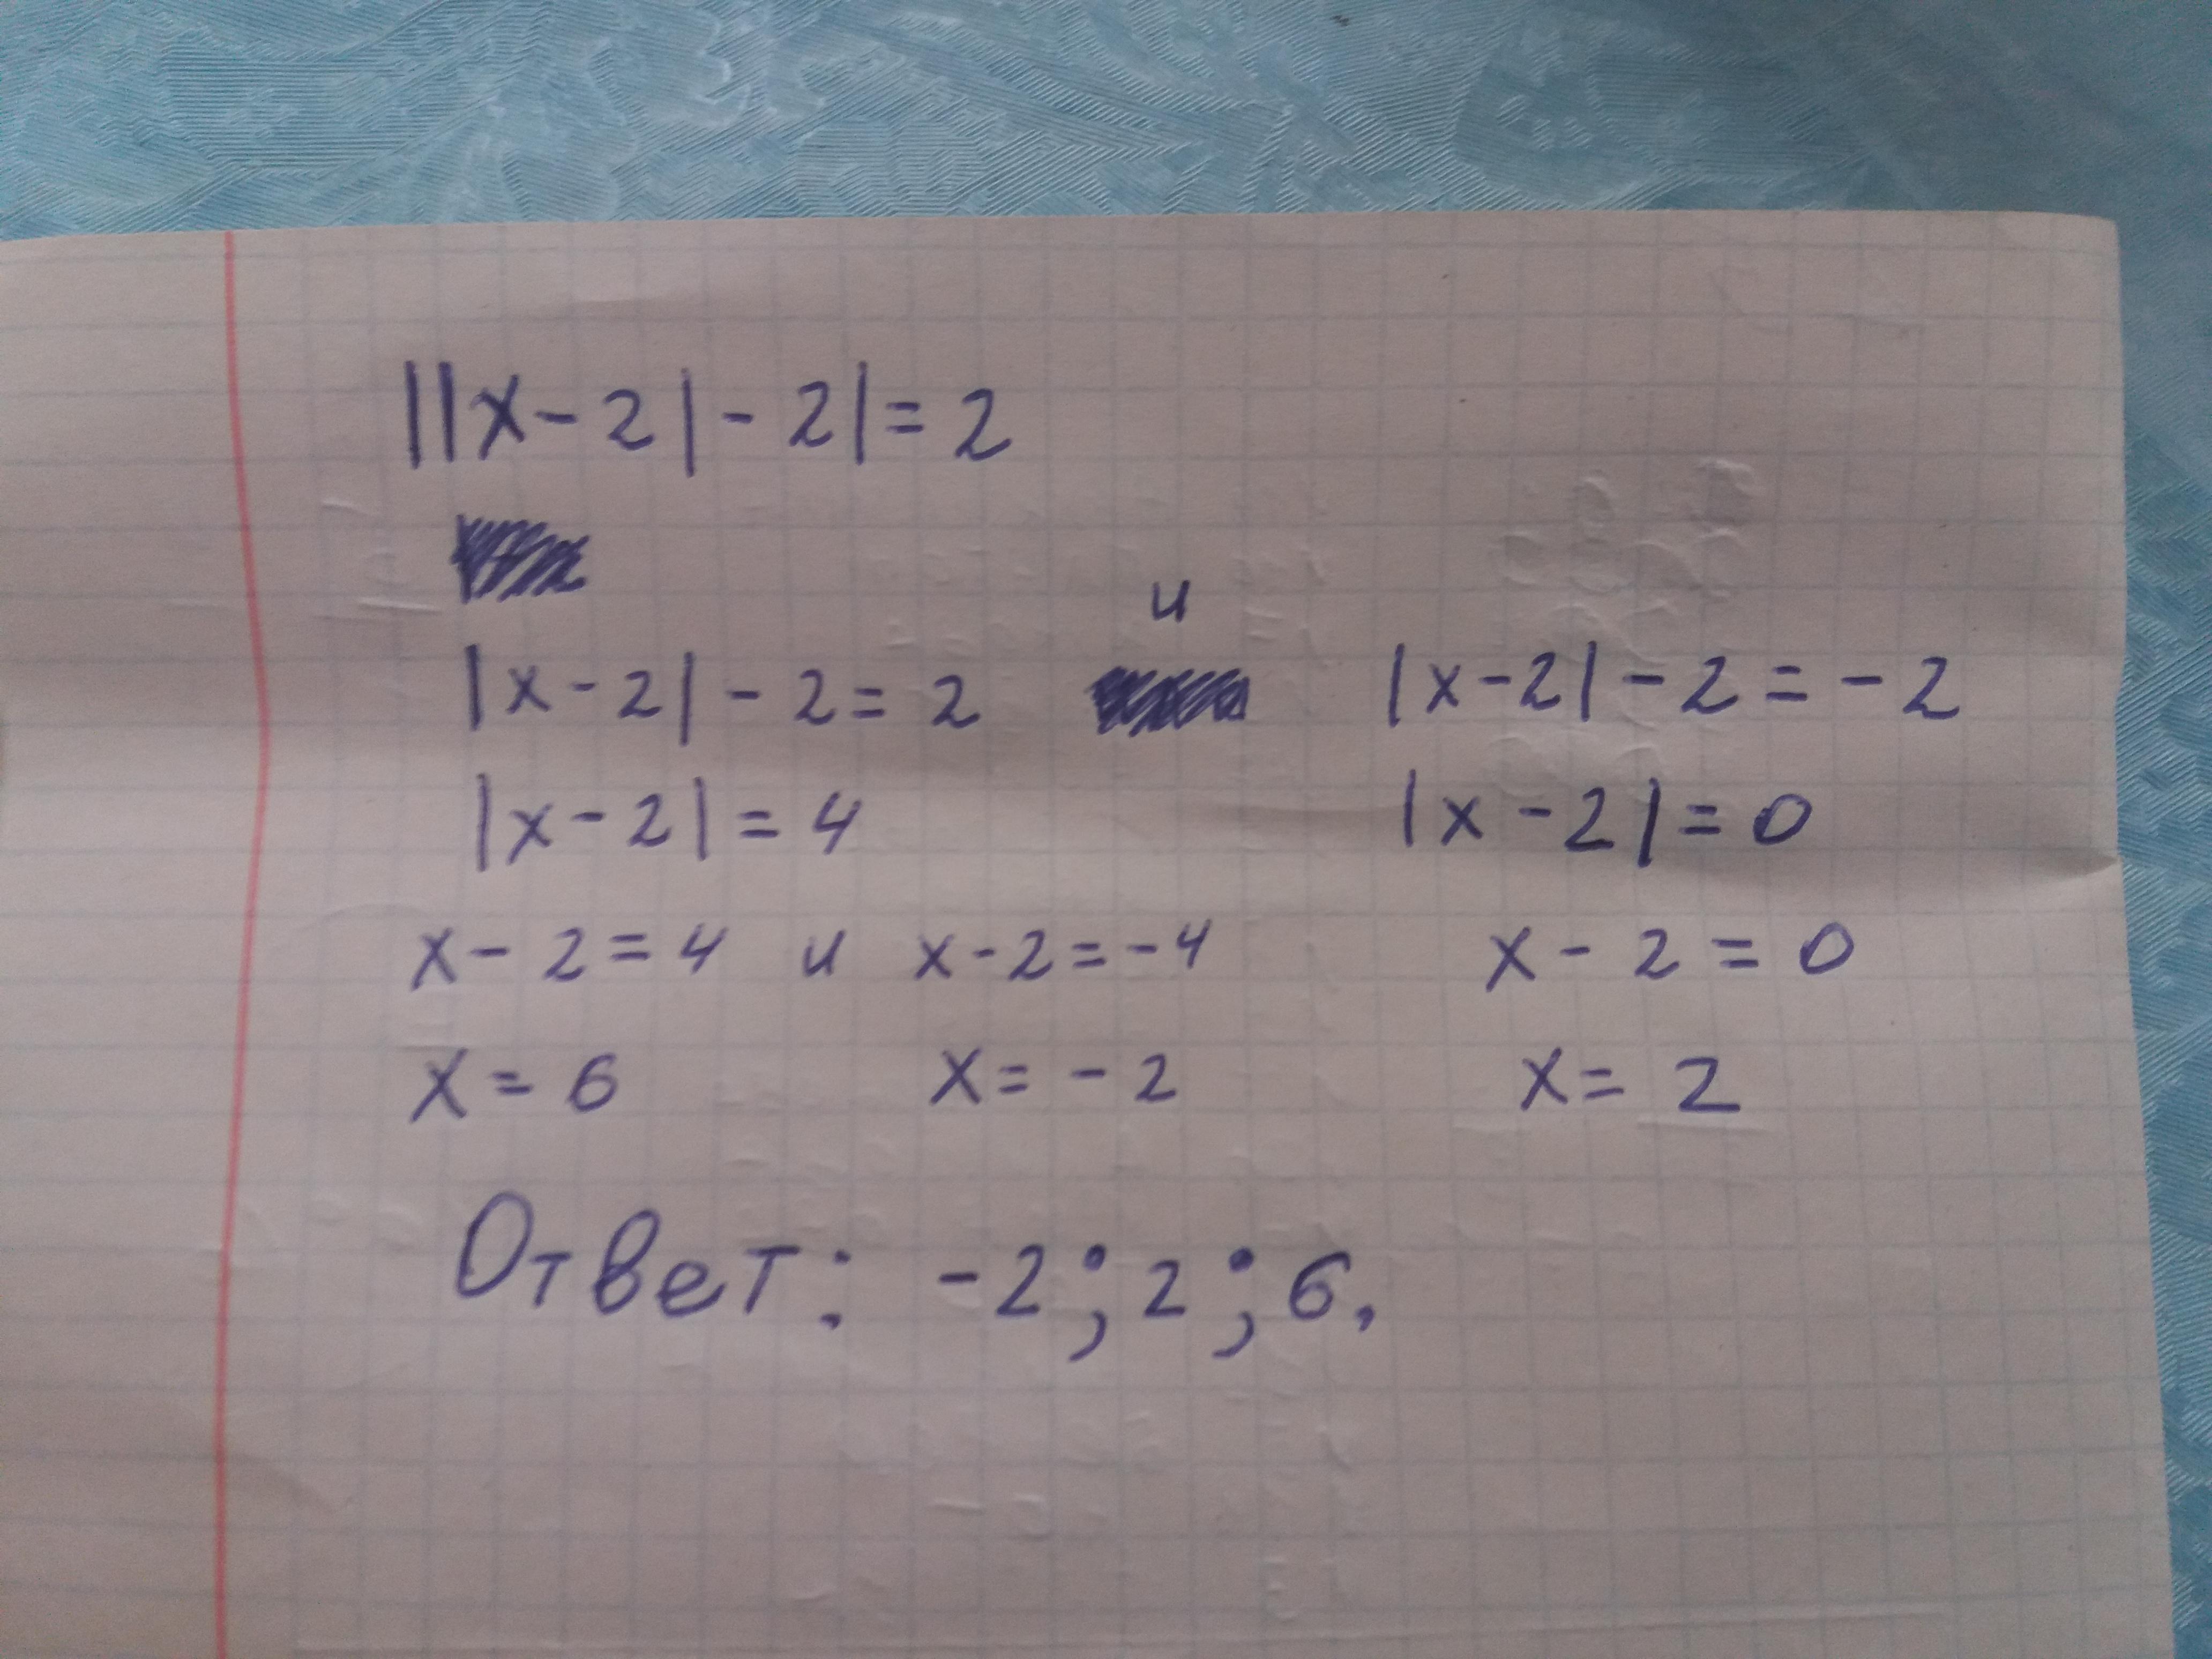 ||x-2|-2|=2
и
|x-2|-2=2 |x-2|-2=-2
|x-2|=4 |x-2|=0
x-2=4 и x-2=-4 x-2=0
x=6 x=-2 x=2
Ответ: -2; 2; 6.